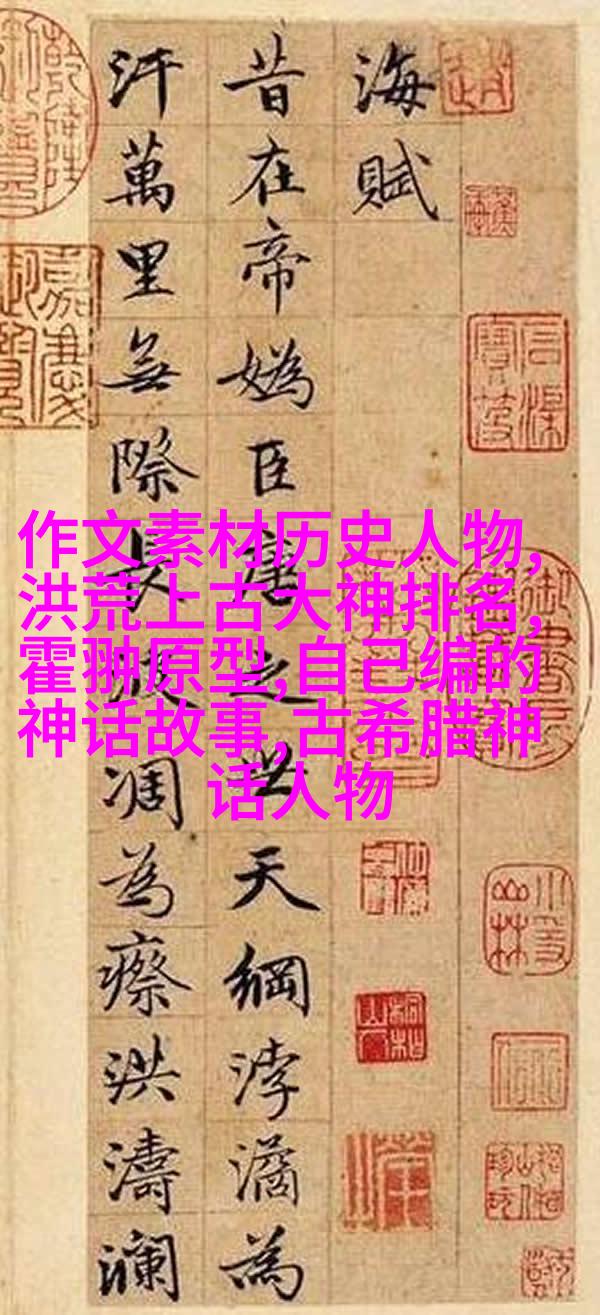 海賦
昔在帝媯臣唐之世天綱浡潏為
汗萬里無際長波凋為瘵洪濤瀾
作文素材历史人物,
洪荒上古大神排名,
霍翀原型,自己编的
神话故事,古希腊神
话人物